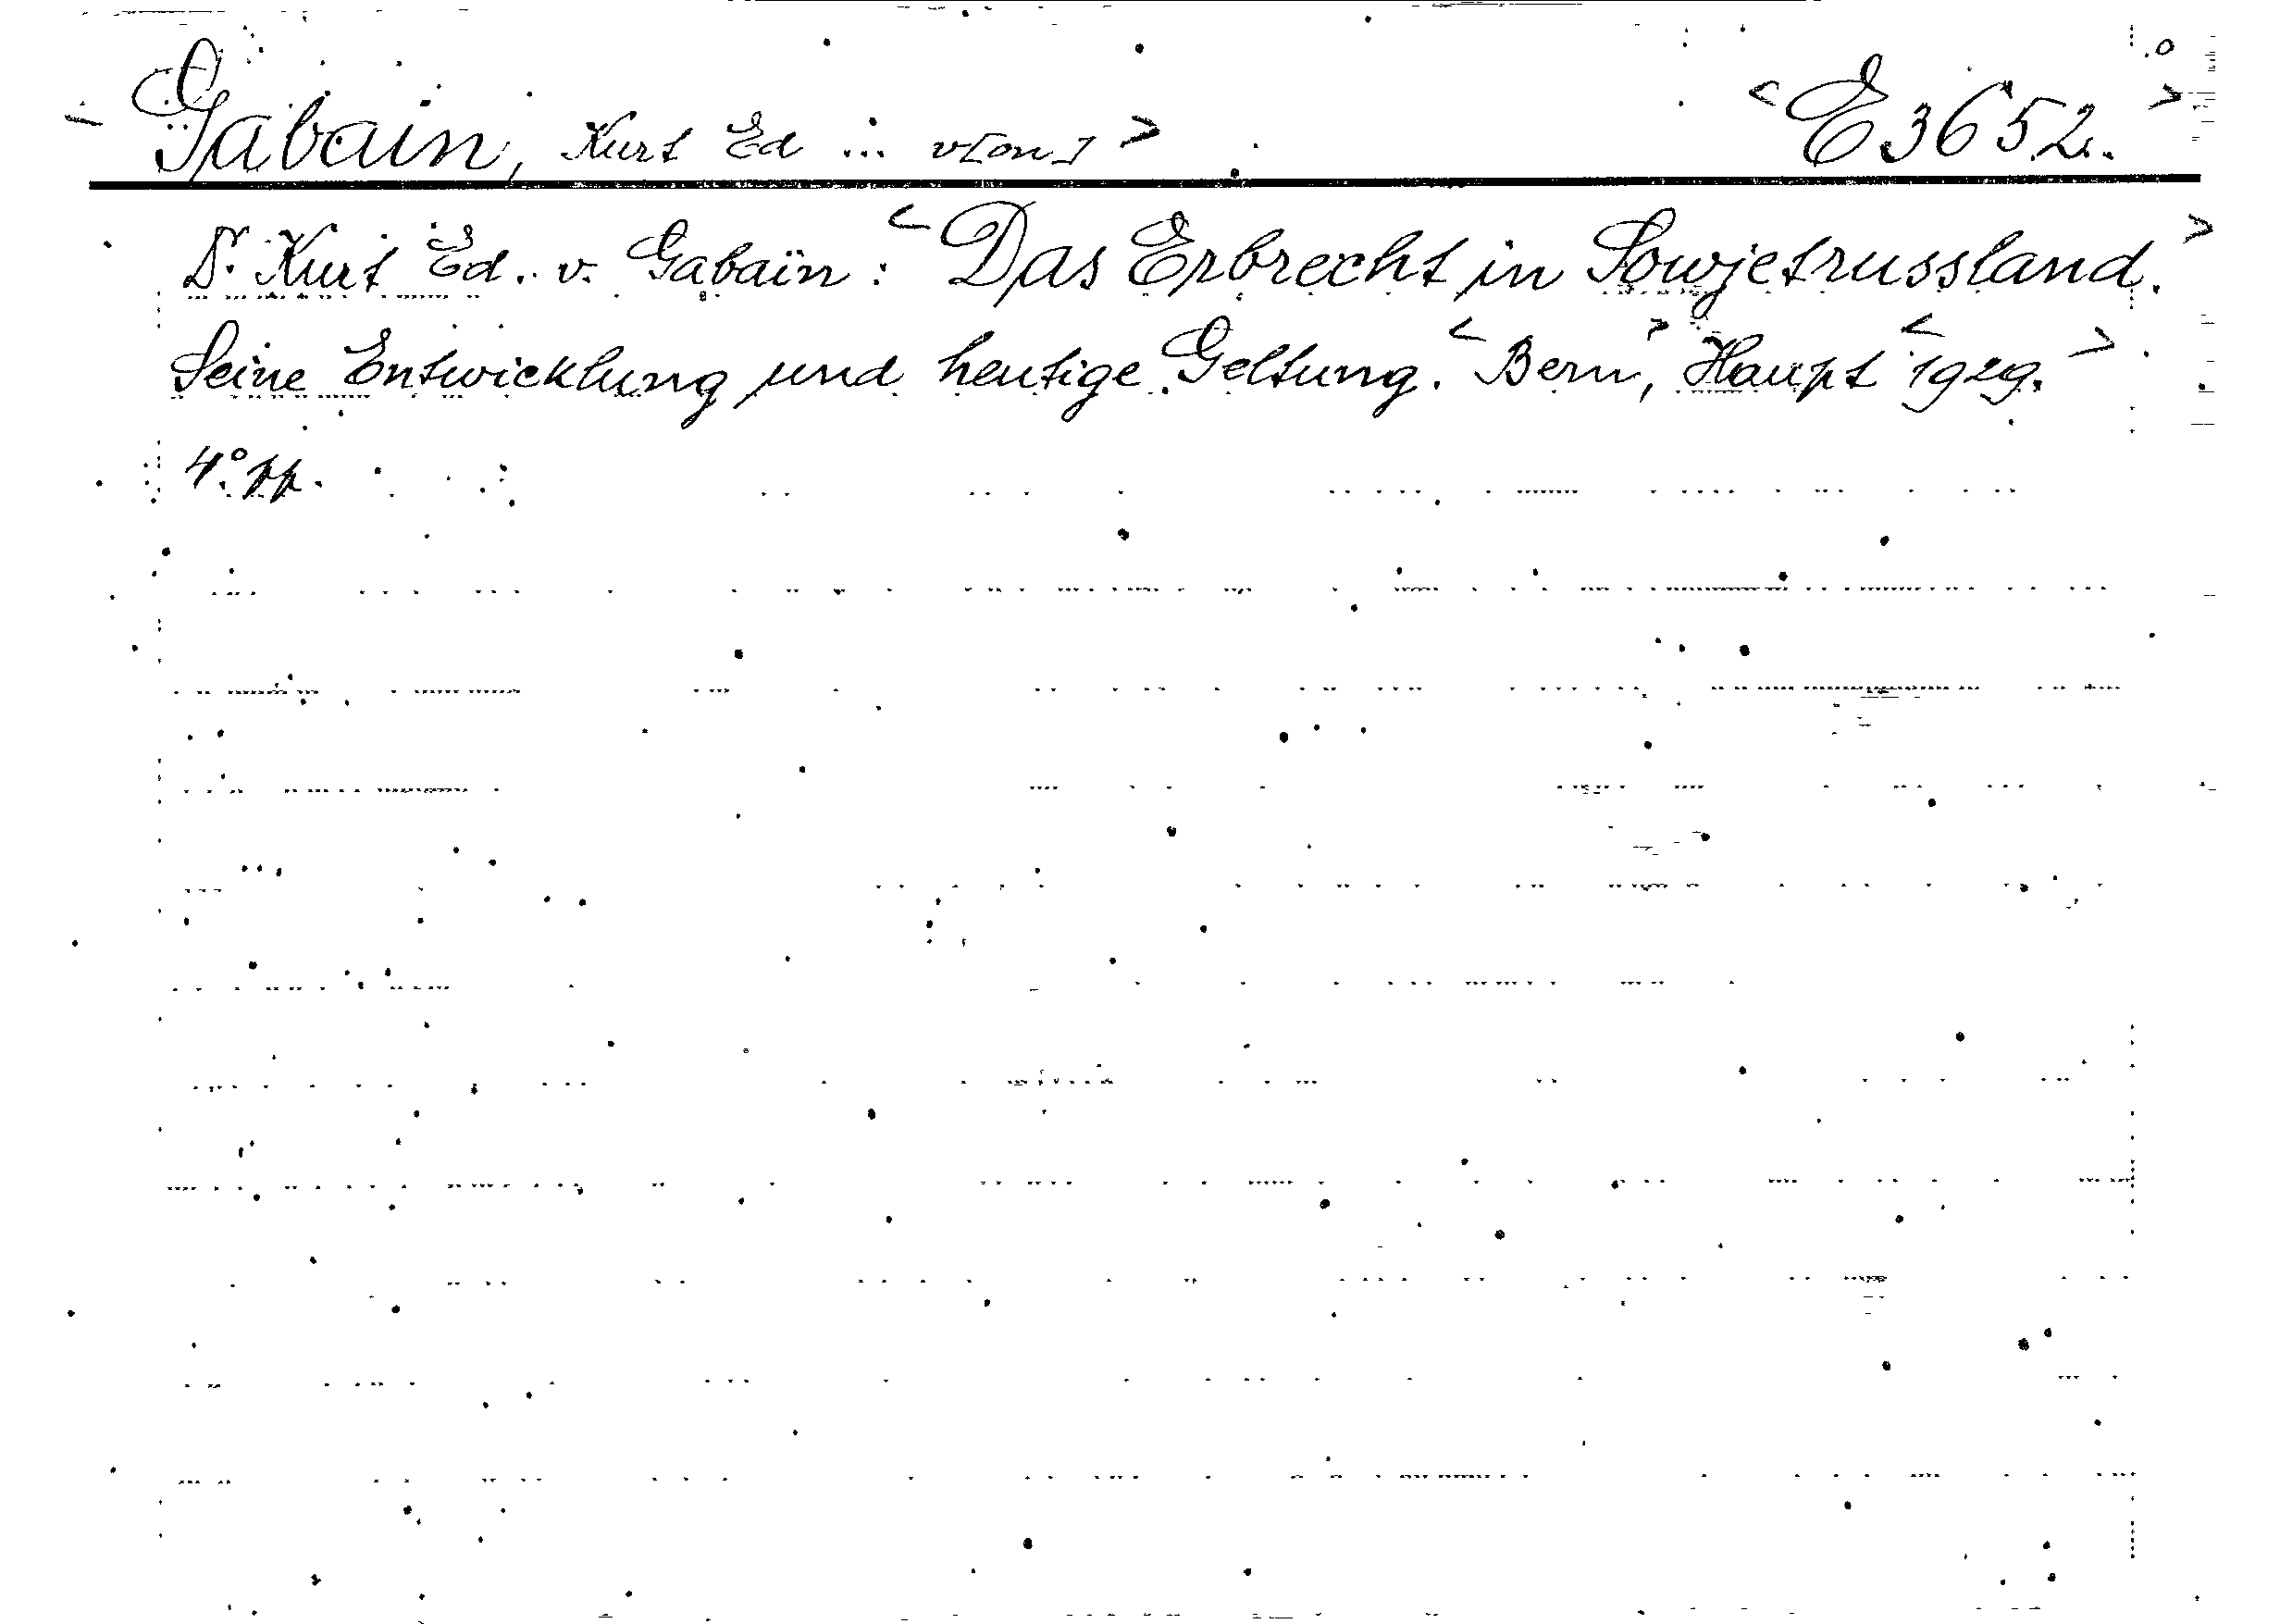 <Gabain, Kurt Ed ... v[on]> <E 3652.>
Dr. Kurt Ed. v. Gabain: <Das Erbrecht in Sowjetrussland.>
Seine Entwicklung und heutige Geltung. <Bern>, Haupt <1929.>
4° pp.